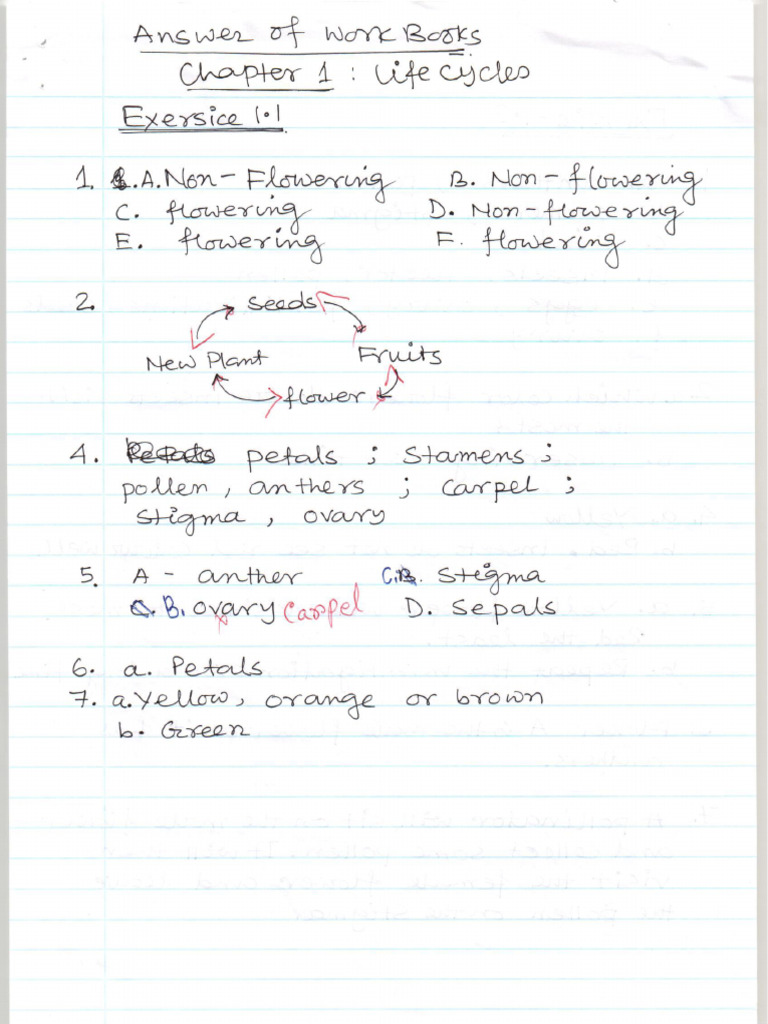 Answer of Work Books
Chapter 1 : Life Cycles
Exersice 1.1
1. A. Non-Flowering B. Non-flowering
C. flowering D. Non-flowering
E. flowering F. flowering
2.
seeds
New Plant Fruits
flower
4. petals ; stamens ;
pollen, anthers ; carpel ;
stigma, ovary
5. A - anther C. Stigma
B. ovary Carpel D. Sepals
6. a. Petals
7. a. Yellow, orange or brown
b. Green